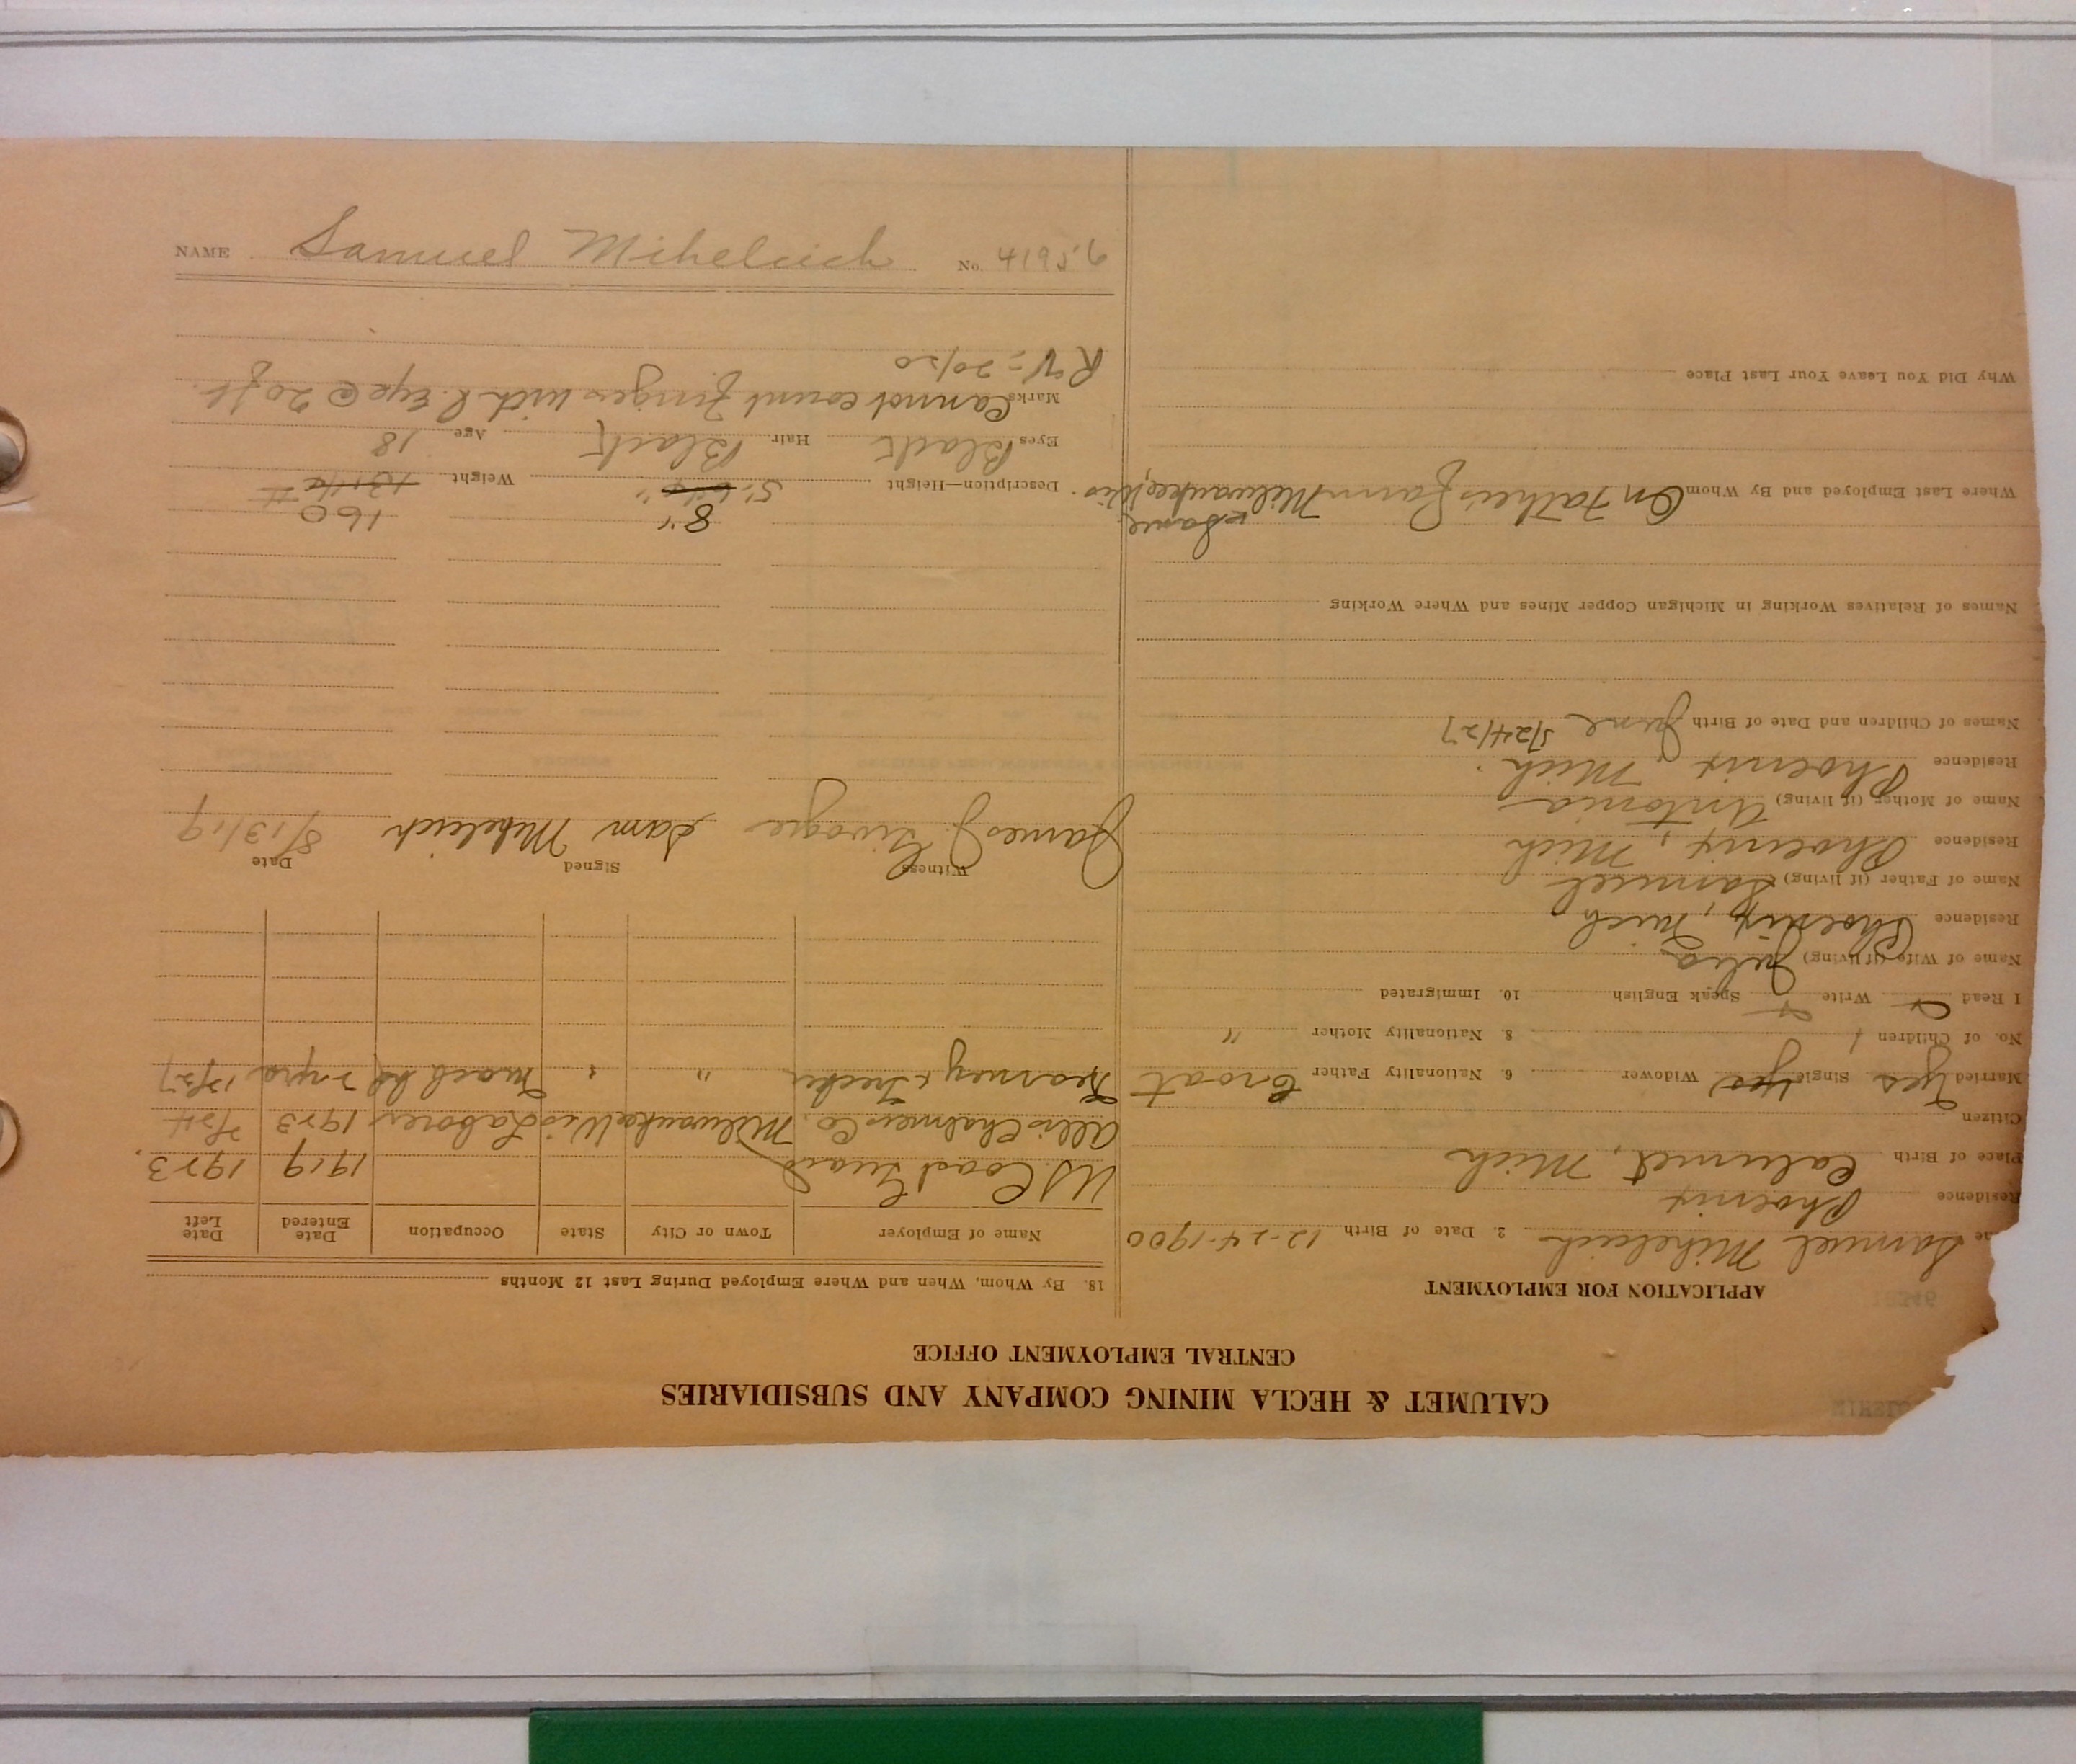 CALUMET & HECLA MINING COMPANY AND SUBSIDIARIES
CENTRAL EMPLOYMENT OFFICE
APPLICATION FOR EMPLOYMENT
Samuel Mihelcich 2. Date of Birth 12-24-1900
Residence Phoenix
Place of Birth Calumet, Mich
Citizen
Married Yes Single Yes Widower 6. Nationality Father Croat
No. of Children 1 8. Nationality Mother "
I Read Write Speak English 10. Immigrated
Name of Wife (if living) Julia
Residence Phoenix, Mich
Name of Father (if living) Samuel
Residence Phoenix, Mich
Name of Mother (if living) Antonia
Residence Phoenix, Mich.
Names of Children and Date of Birth June 5/24/27
Names of Relatives Working in Michigan Copper Mines and Where Working
Same
Where Last Employed and By Whom On Father's Farm Milwaukee, Wis.
Why Did You Leave Your Last Place
18. By Whom, When and Where Employed During Last 12 Months
Name of Employer Town or City State Occupation Date Entered Date Left
U.S. Coast Guard 1919 1923.
Allis Chalmers Co. Milwaukee Wis Laborer 1923
Kearney & Trecker " " Mach hd 2 yrs 12/27
Witness Signed Date
James J. Sam Mihelcich 8/13/19
8" 160
Description—Height 5' Weight
Eyes Black Hair Black Age 18
Marks Cannot count fingers with L. Eye @ 20 ft.
RV = 20/20
NAME Samuel Mihelcich No. 41956